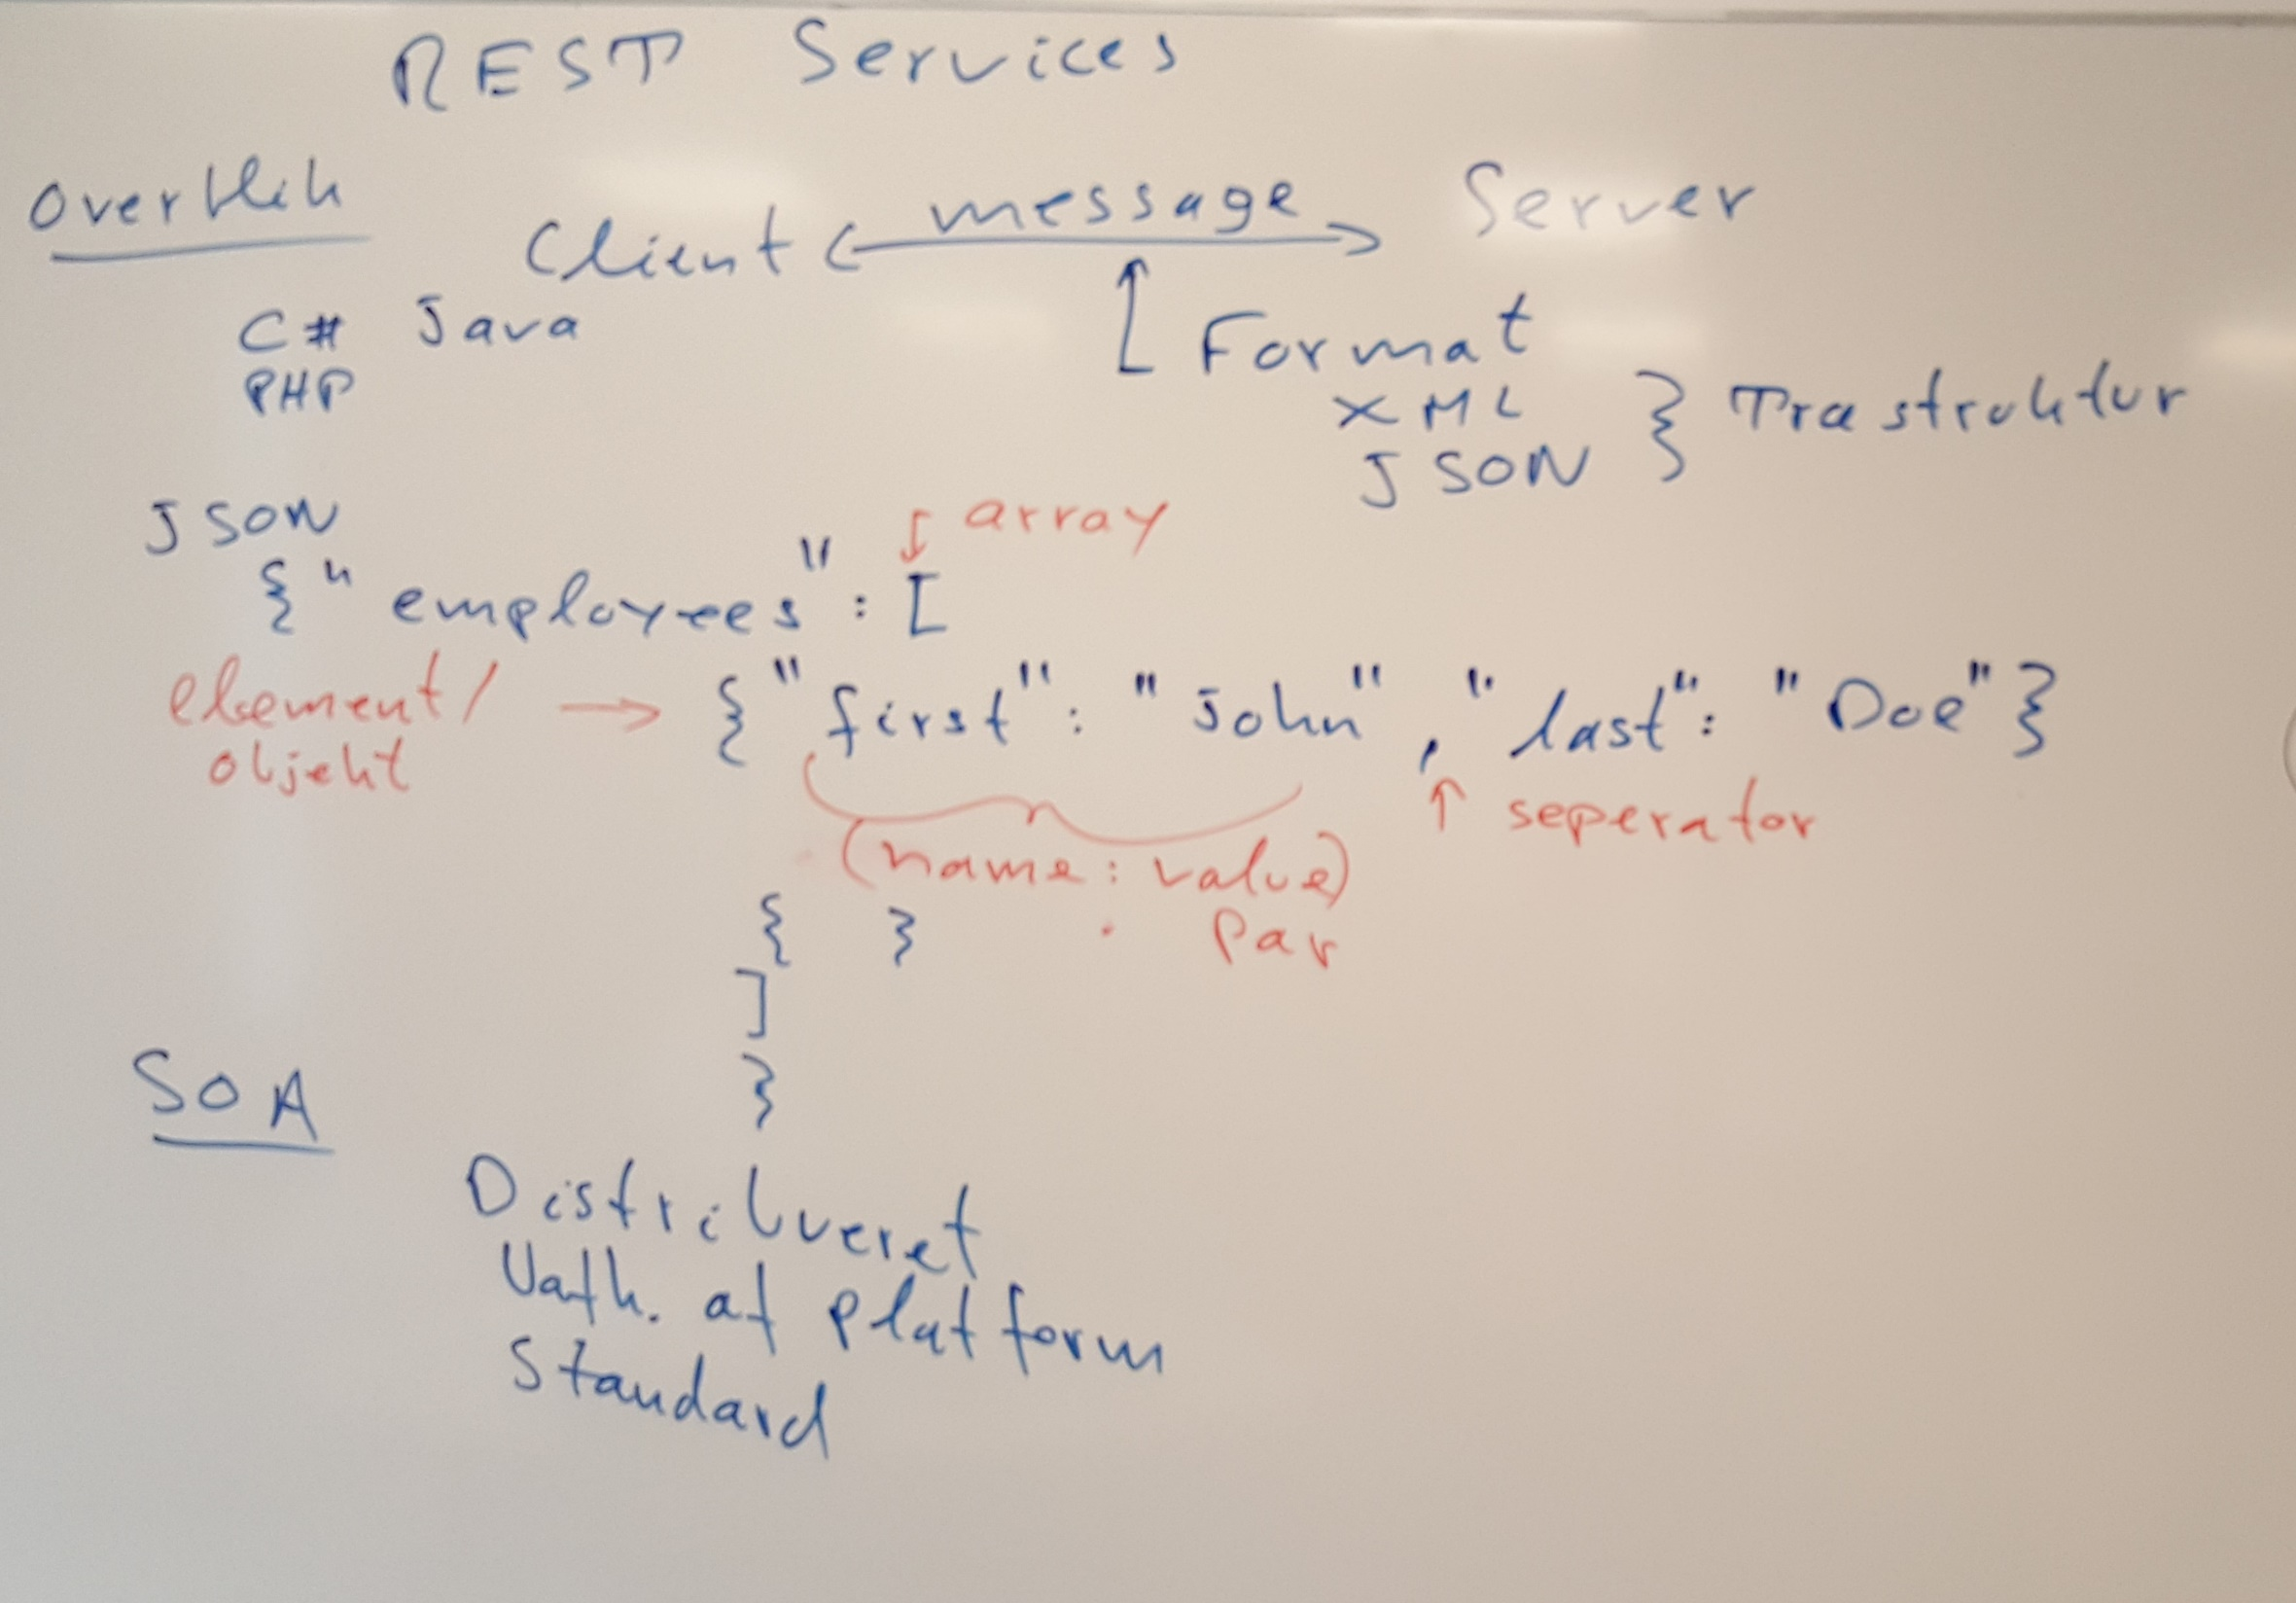 REST Services
Overblik
Client <— message —> Server
C# Java
PHP
Format
XML
JSON } Træstruktur
JSON
array
{"employees": [
element/
objekt
→ {"first": "John", "last": "Doe"}
↑ seperator
(name: value)
Par
{ }
]
}
SOA
Distribueret
Uafh. af platform
Standard